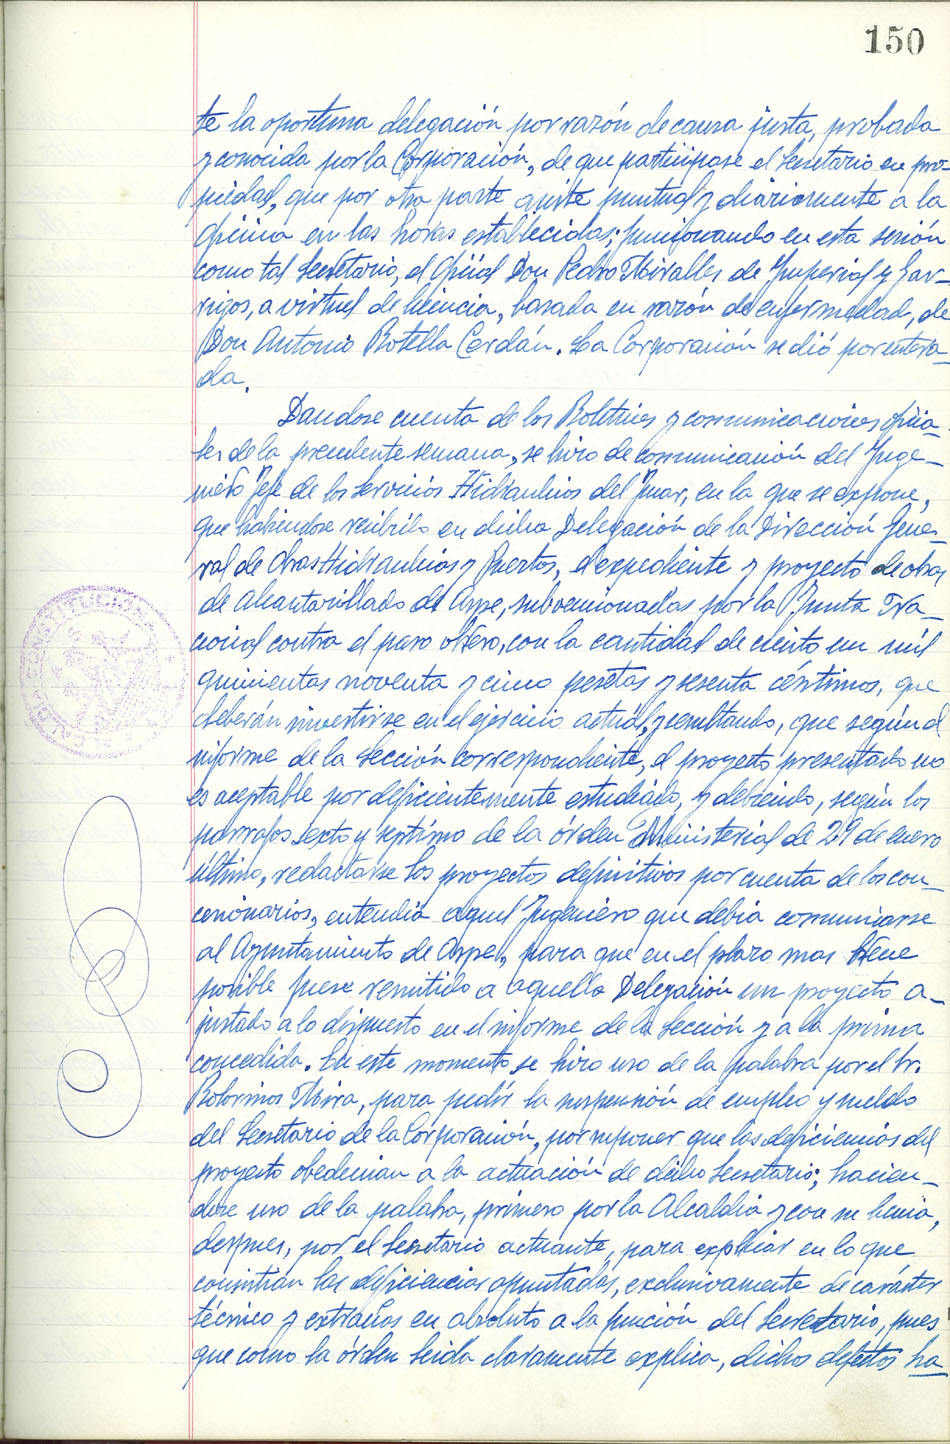 150
te la oportuna delegación por razón de causa justa, probada
y conocida por la Corporación, de que participase el Secretario en pro-
piedad, que por otra parte asiste puntual y diariamente a la
oficina en las horas establecidas; funcionando en esta sesión
como tal Secretario, el Oficial Don Pedro Miralles de Imperial y Gar-
rigos, a virtud de licencia, basada en razón de enfermedad, de
Don Antonio Botella Cerdán. La Corporación se dió por entera-
da.
Dandose cuenta de los Boletines y comunicaciones oficia-
les de la precedente semana, se hizo de comunicación del Inge-
niero Jefe de los Servicios Hidraulicos del Jucar, en la que se expone,
que habiendose recibido en dicha Delegación de la Dirección Gene-
ral de Obras Hidraulicas y Puertos, el expediente y proyecto de obras
de Alcantarillado de Aspe, subvencionadas por la Junta Na-
cional contra el paro obrero, con la cantidad de ciento un mil
quinientas noventa y cinco pesetas y sesenta céntimos, que
deberán invertirse en el ejercicio actual, y resultando, que según el
informe de la Sección correspondiente, el proyecto presentado no
es aceptable por deficientemente estudiado, y debiendo, según los
parrafos sexto y septimo de la órden Ministerial de 29 de enero
último, redactarse los proyectos definitivos por cuenta de los con-
cesionarios, entendia aquel Ingeniero que debia comunicarse
al Ayuntamiento de Aspe, para que en el plazo mas breve
posible fuese remitido a aquella Delegación un proyecto a-
justado a lo dispuesto en el informe de la Sección y a la prima
concedida. En este momento se hizo uso de la palabra por el Sr.
Bolorinos Mira, para pedir la suspensión de empleo y sueldo
del Secretario de la Corporación, por suponer que las deficiencias del
proyecto obedecian a la actuación de dicho Secretario; hacien-
dose uso de la palabra, primero por la Alcaldia y con su licencia,
despues, por el Secretario actuante, para explicar en lo que
consistian las deficiencias apuntadas, exclusivamente de carácter
técnico y extrañas en absoluto a la función del Secretario, pues
que como la órden leida claramente explica, dichos defectos ha